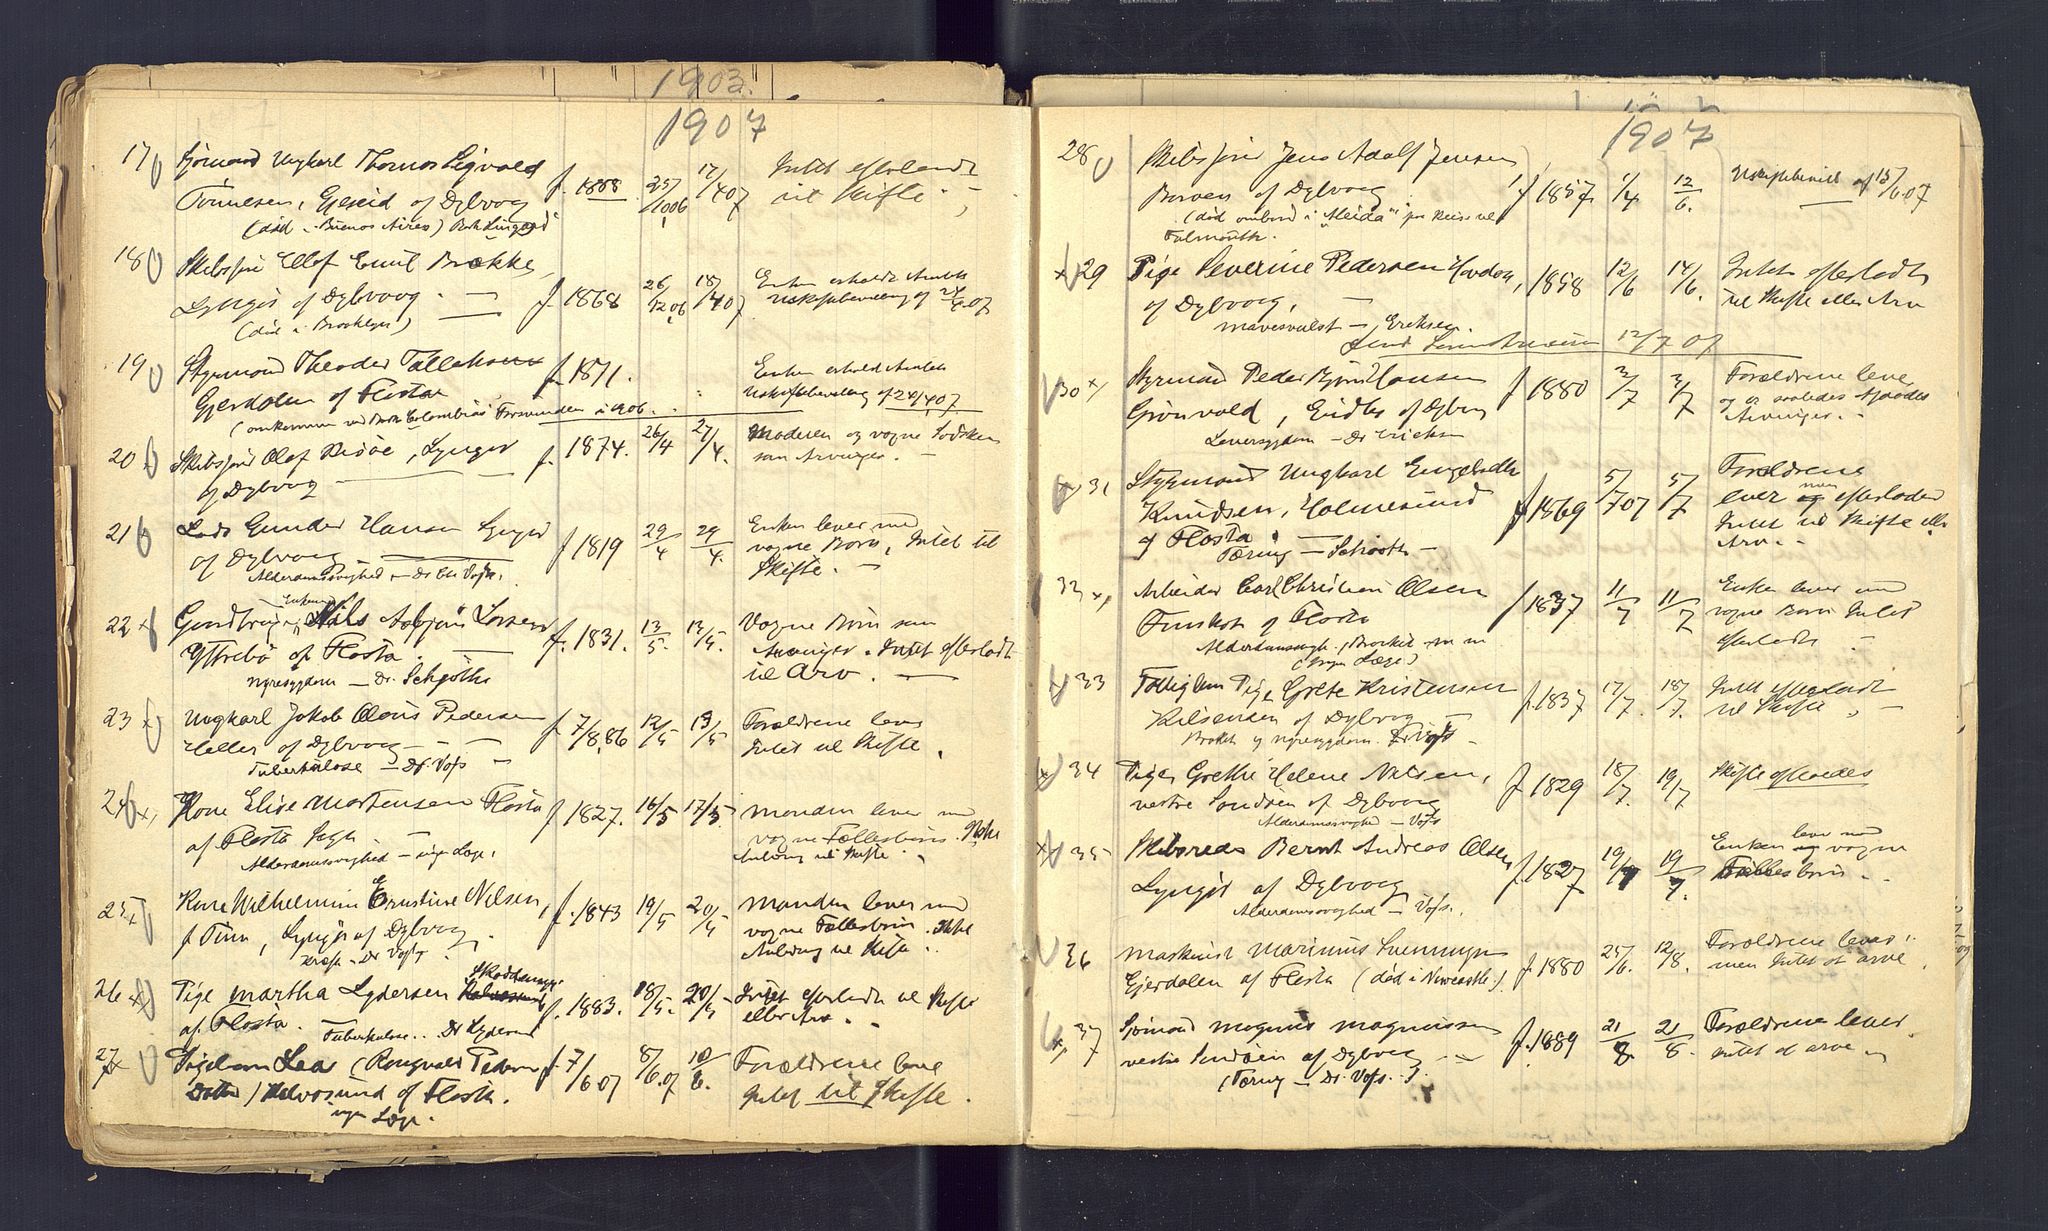 1903.
1907
17 Sjømand Ungkarl Thomas Sigvald
Tønnesen, Gjeseid af Dybvaag f. 1888 25/10 06 17/4 07 Intet efterladt
til Skifte.
(død i Buenos Aires) Bark
18 Skibsfører Ellef Emil Brække,
Lyngør af Dybvaag. — f. 1868 26/12 06 18/4 07 Enken erholdt Amtets
Uskiftebevilling af 24/4 07
(død i Brooklyn)
19 Styrmand Theodor Tallaksen f. 1871. Enken erholdt Amtets
Gjerdalen af Flosta Uskiftebevilling af 24/4 07
(omkommen ved Bark Columbias Forsvinden i 1906.
20 Skibsfører Olaf Risøe, Lyngør f. 1874. 26/4 27/4. Moderen og vogne Sødsken
af Dybvaag — som Arvinger. —
21 Lods Gunder Hansen Lyngør f 1819 29/4 29/4. Enken lever med
af Dybvaag — vogne Børn, Intet til
Alderdomssvaghed — Dr Voss. Skifte. —
22 Enkemand
Gaardbruger Nils Asbjørn Larsen f. 1831. 13/5. 13/5. Vogne Børn som
Yttrebø af Flosta. — Arvinger. Intet efterladt
Nyresygdom — Dr. Schjøth til Arv. —
23 Ungkarl Jakob Olous Pedersen f 7/8.86 12/5 13/5 Forældrene lever
Heller af Dybvaag — Intet til Skifte.
Tuberkulose — Dr. Voss —
24 Kone Elise Mortensen Flosta f 1827. 16/5 17/5. Manden lever med
af Flosta Sogn. — vogne Fællesbørn. Ikke
Alderdomssvaghed — ingen Læge. Anledning til Skifte.
25 Kone Wilhelmine Ernstine Nilsen, f. 1843 19/5 20/5 Manden lever med
f Finn, Lyngør af Dybvaag vogne Fællesbørn. Ikke
Kræft — Dr Voss Anledning til Skifte.
26 Pige Martha Lydersen f. 1883. 18/5. 20/5 Intet efterladt til Skifte
af Flosta. eller Arv.
Tuberkulose.. Dr
27 Pigebarn Lea (Rongvald Pedersen f. 7/6 07 8/6.07 10/6. Forældrene leve
Datter) Kalvøsund af Flosta. Intet til Skifte.
ingen Læge.
1907
28 Skibsfører Jens Adolf Jensen
Borøen af Dybvaag f 1857. 1/4 12/6. Uskiftebevill af 15/6.07
(død ombord i "Aleida" paa Reise til
Falmouth.
29 Pige Severine Pedersen Hovden, 1858 12/6 14/6. Intet efterladt
af Dybvaag, — til Skifte eller Arv
Mavesvulst — Eriksen.
12/7 07
30 Styrmand Peder Bjørn Hansen f 1880 2/7 3/7 Forældrene leve
Grønvold, Eidbo af Dybvaag og er saaledes Afdødes
Arvinger.
Leversygdom — Dr Ericksen
31 Styrmand Ungkarl Engebreth f 1869 5/7 07 5/7 Forældrene
Knudsen, Holmesund lever men efterlader
af Flosta. — Intet til Skifte eller
Tæring — Schjøth — Arv.
32 Arbeider Carl Christian Olsen f 1837 11/7 11/7 Enken lever med
Funskot af Flosta vogne Børn Intet
Alderdomssvagh., Brokket m m efterladt.
(Ingen Læge)
33 Fattiglem Pige Grete Kristensen f. 1837 17/7. 18/7. Intet efterladt
Kilsenden af Dybvaag — til Skifte. —
Brokk og Nyresygdom. Dr Voss —
34 Pige Grethe Helene Nilsen, f 1829 18/7. 19/7 Skifte afholdes
vestre Sandøen af Dybvaag
Alderdomssvaghed — Voss
35 Skibsreder Bernt Andreas Olsen f. 1827 19/7 19/7. Enken lever med vogne
Lyngør af Dybvaag Fællesbørn.
Alderdomssvaghed — Voss.
36 Maskinist Marinius f. 1880 25/6. 12/8. Forældrene lever
Gjerdalen af Flosta (død i Newcastle.) men Intet at arve.
37 Sjømand Magnus Magnussen f. 1889 21/8. 21/8. Forældrene lever.
vestre Sandøen af Dybvaag — intet at arve
(Tæring — Dr. Voss.)